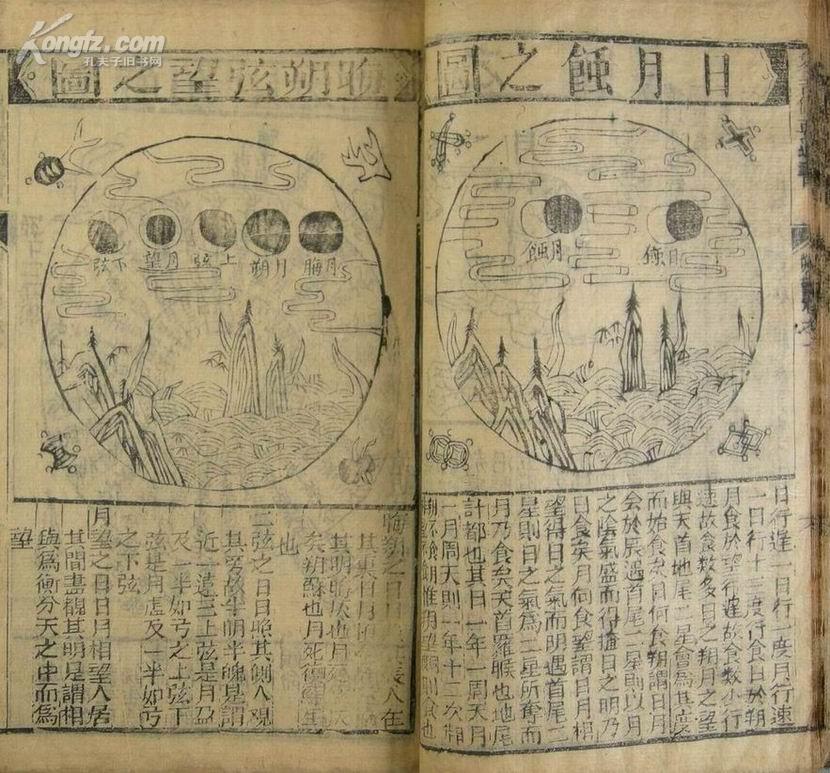 日月蝕之圖
日蝕
月蝕
日行遲一日行一度月行速
一日行十三度行食日於朔
月食於望行遲故食數少行
速故食數多日之朔月之望
與天首地尾二星會為其度
而始食矣日何食朔謂日月
會於辰遇首尾二星則以月
之陰氣盛而得掩日之明乃
日食矣月何食望謂日月相
望得日之氣而明遇首尾二
星則日之氣為二星所奪而
月乃食矣天首羅睺也地尾
計都也其日一年一周天月
一月周天則一年十二次相
食也
晦朔弦望之圖
月晦
月朔
上弦
月望
下弦
晦朔之日月人在
其東
其明晦灰也月死
矣朔蘇也月死復蘇生
也
二弦之日日照其側人觀
其旁故半明半魄是謂
近一遠三上弦是月盈
及一半如弓之上弦下
弦是月虛及一半如弓
之下弦
月望之日日月相望人居
其間盡覩其明是謂相
與為衡分天之中而為
望
Kongfz.com
孔夫子旧书网